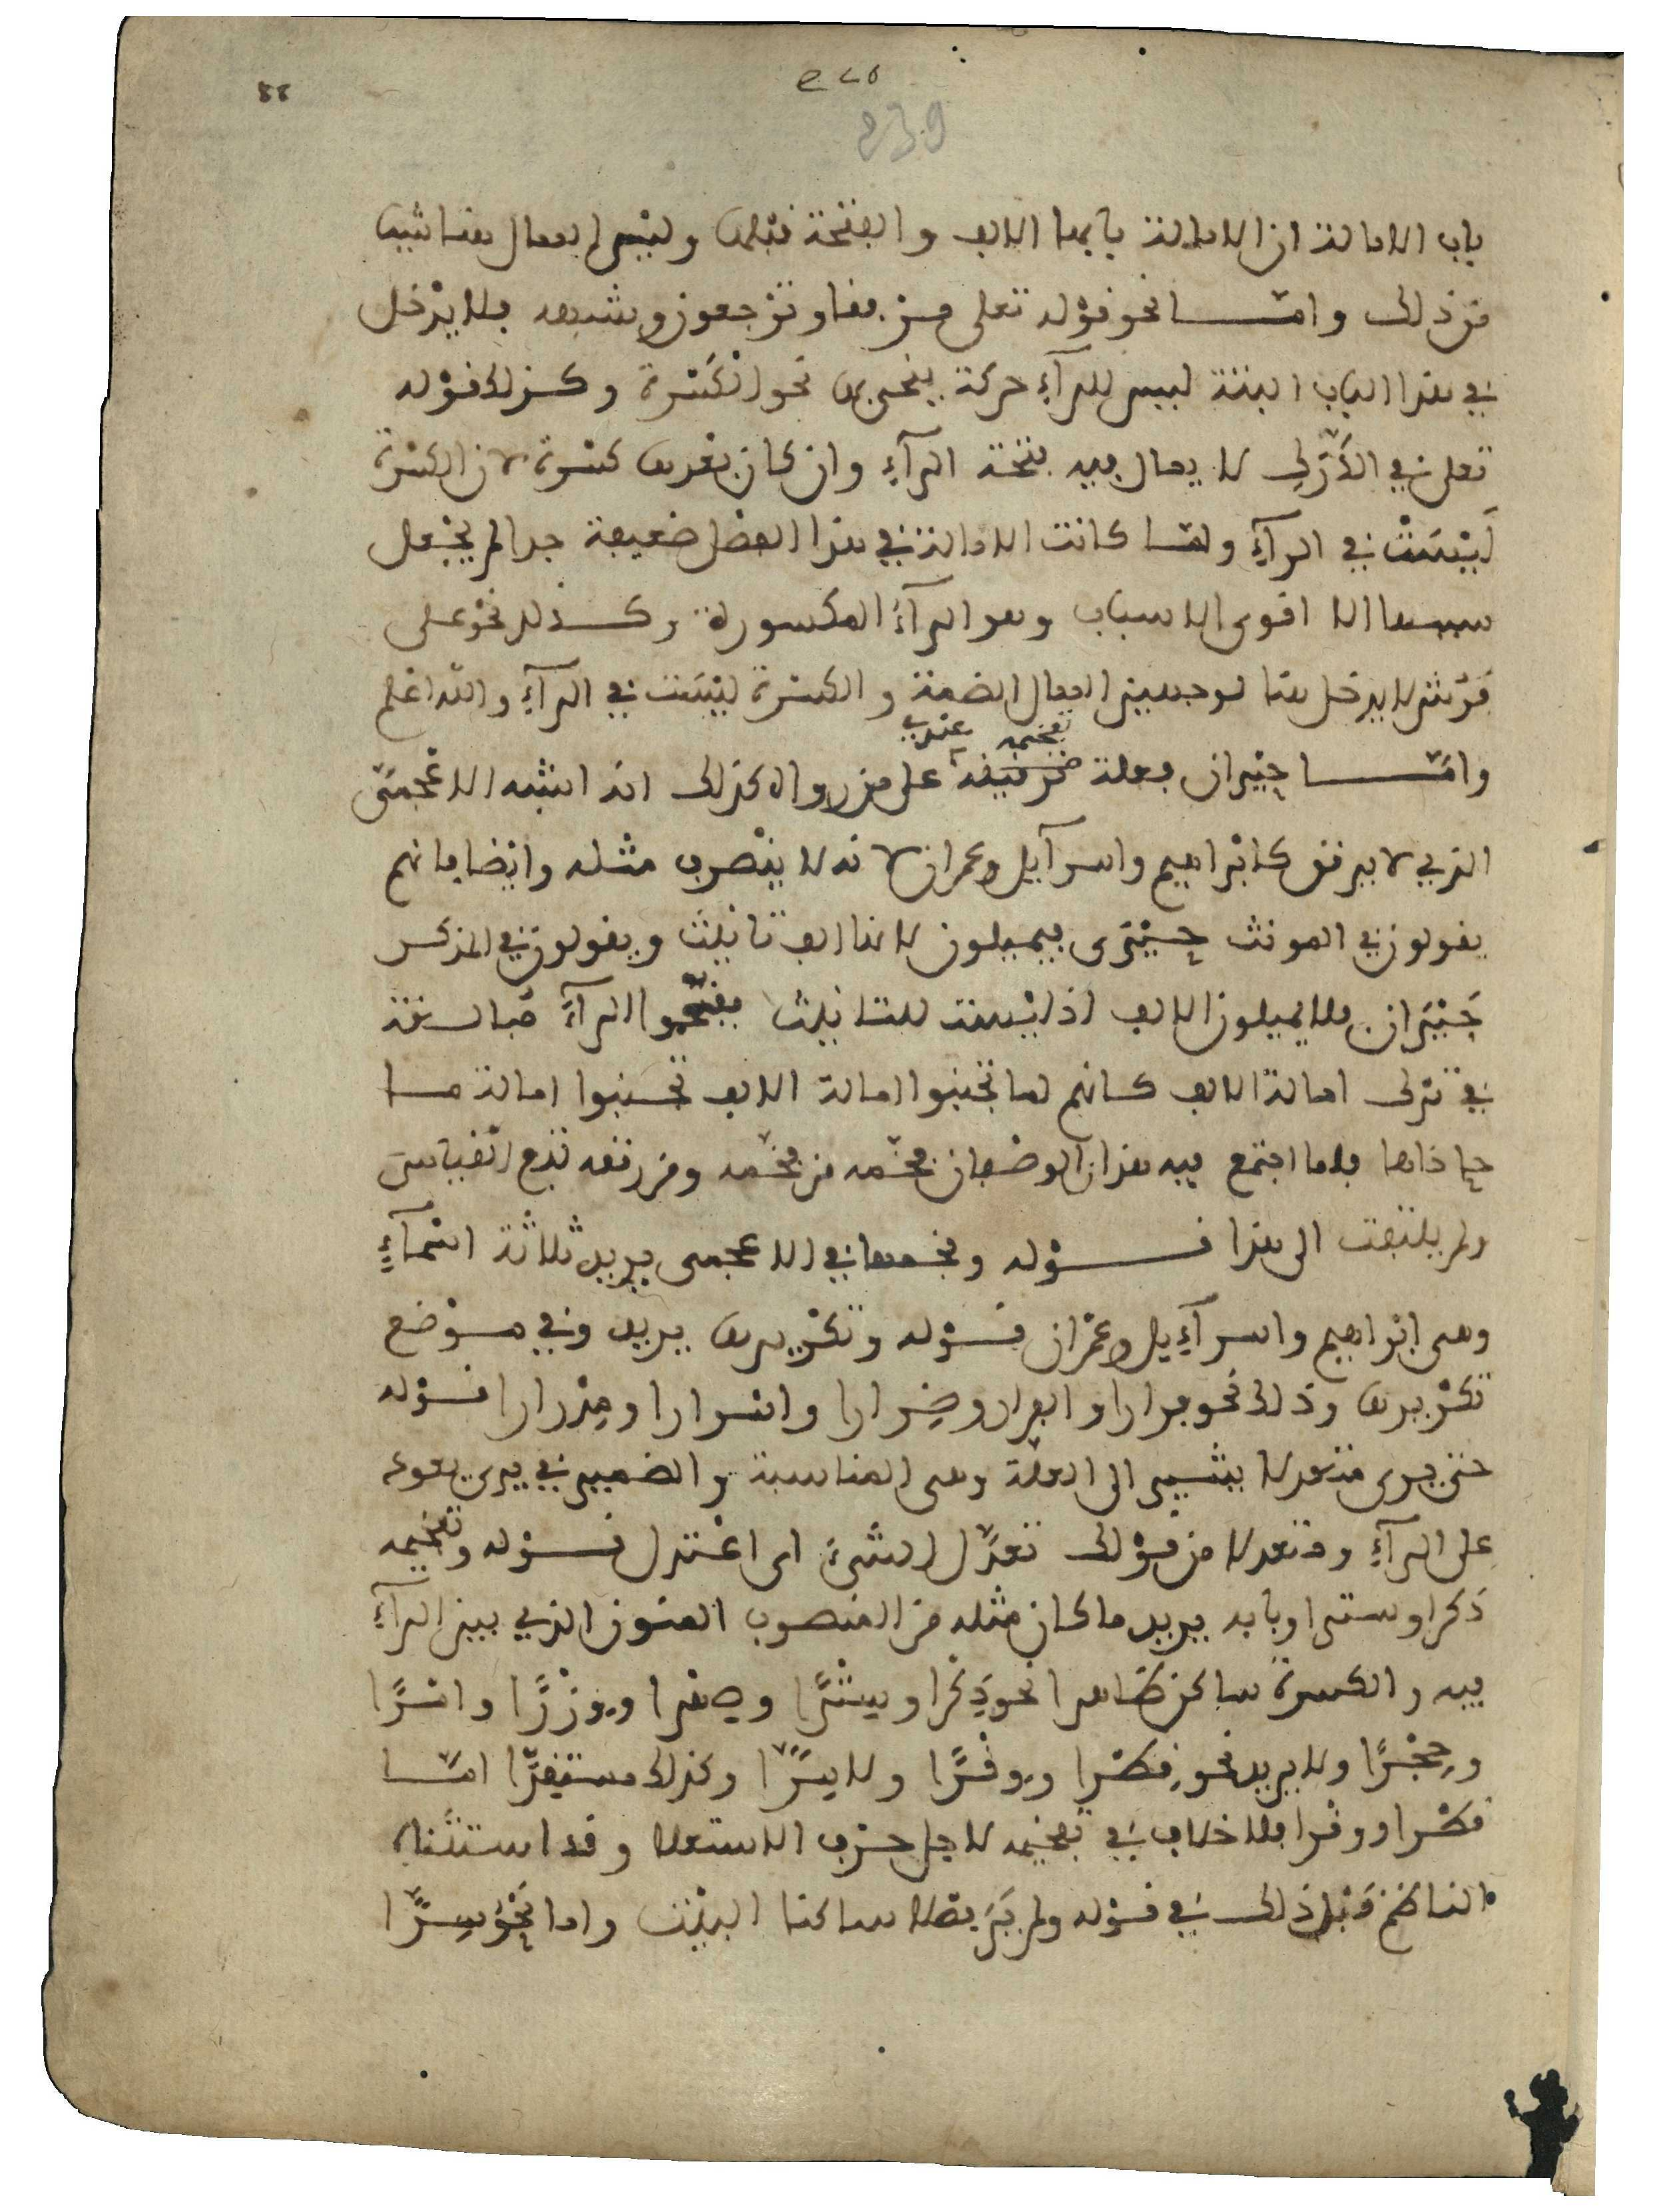 باب الامالة ان الامالة بابها الالف والفتحة قبلها وليس الممال هنا شيئا
من ذلك وامّا نحو قوْله تعلى مِن مقا وترْجعون وشبهه فلا يدْخل
في هذا الباب البتة ليس للرآءِ حركة ينحى بها نحو الكسْرة وكذلك قوْله
تعلى في الدَّرَكِ لا يمال فيه فتحة الرآءِ وان كان بعدها كسْرة لان الكسْرة
ليْسَتْ في الرآءِ ولمّا كانت الامالة في هذا الفصل ضعيفة جدا لم يجْعل
سببها الا اقوى الاسباب وهو الرآءُ المكسورة وكذلك نحو على
سرر لا يدخل هنا لوجهين الممال الضمة والكسْرة ليْسَت في الرآءِ والله اعْلم
وامّا حيْران فعلة تفخيمه عندي على من رواه كذلك انه اشْبه الاعْجمىّ
الذي لا يرقق كابْراهيم واسرآيل وعمران لانه لا ينْصرف مثله وايْضا فانهم
يقولون في المونث حيْرَى فيميلون لانها الف تانيث ويقولون في المذكر
حَيْرَان فلا يميلون الالف اذ ليْست للتانيث ففخّموا الرآءَ مبالغة
في ترك امالة الالف كانهم لما تجنبوا امالة الالف تجنبوا امالة ما
حاذاها فلما اجتمع فيه هذان الوصْفان فخّمه من فخّمه ومن رققه تبع القياس
ولم يلتفت الى هذا قوْله وفخمها في الاعجمى يريد ثلاثة اسْمآءٍ
وهى ابْراهيم واسرآءِيل وعمْران قوْله وتكْريرها يريد وفي موْضع
تكْريرها وذلك نحو فرارا والفرار وضِرارا واسْرارا ومِدْرارا قوْله
حتى يرى متعدلا يشير الى العلة وهى المناسبة والضمير في يرى يعود
على الرآءِ ومتعدلا من قوْلك تعدّل الشّىءُ اى اعْتدل قوْله وتفخيمه
ذكْرا وسترا وبابه يريد ما كان مثله من المنصوب المنون الذي بين الرآءِ
فيه والكسرة ساكن ظاهر نحو ذِكْرا وسِتْرًا وصِهْرا ووِزْرًا وامْرًا
وحِجْرًا ولا يريد نحو قِطْرا ووِقْرًا ولا سِرًّا وكذلك مستقِرّا امّا
قطْرا ووقْرا فلا خلاف في تفخيمه لاجل حرْف الاستعلا وقد استثْناه
الناظم قبْل ذلك في قوْله ولم يَرَ فصْلا ساكنا البيْت واما نحْو سِرًّا